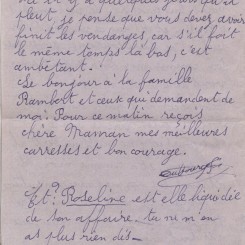 pleut, je pense que vous devez avoir
finit les vendanges, car s'il fait
le même temps la bas, c'est
ambêtant.
Le bonjour à la famille
Rambort et ceux qui demandent de
moi. Pour ce matin reçois
chère Maman mes meilleures
carresses et bon courage.
Roseline est elle liquidée
de son affaire, tu ne m'en
as plus rien dès